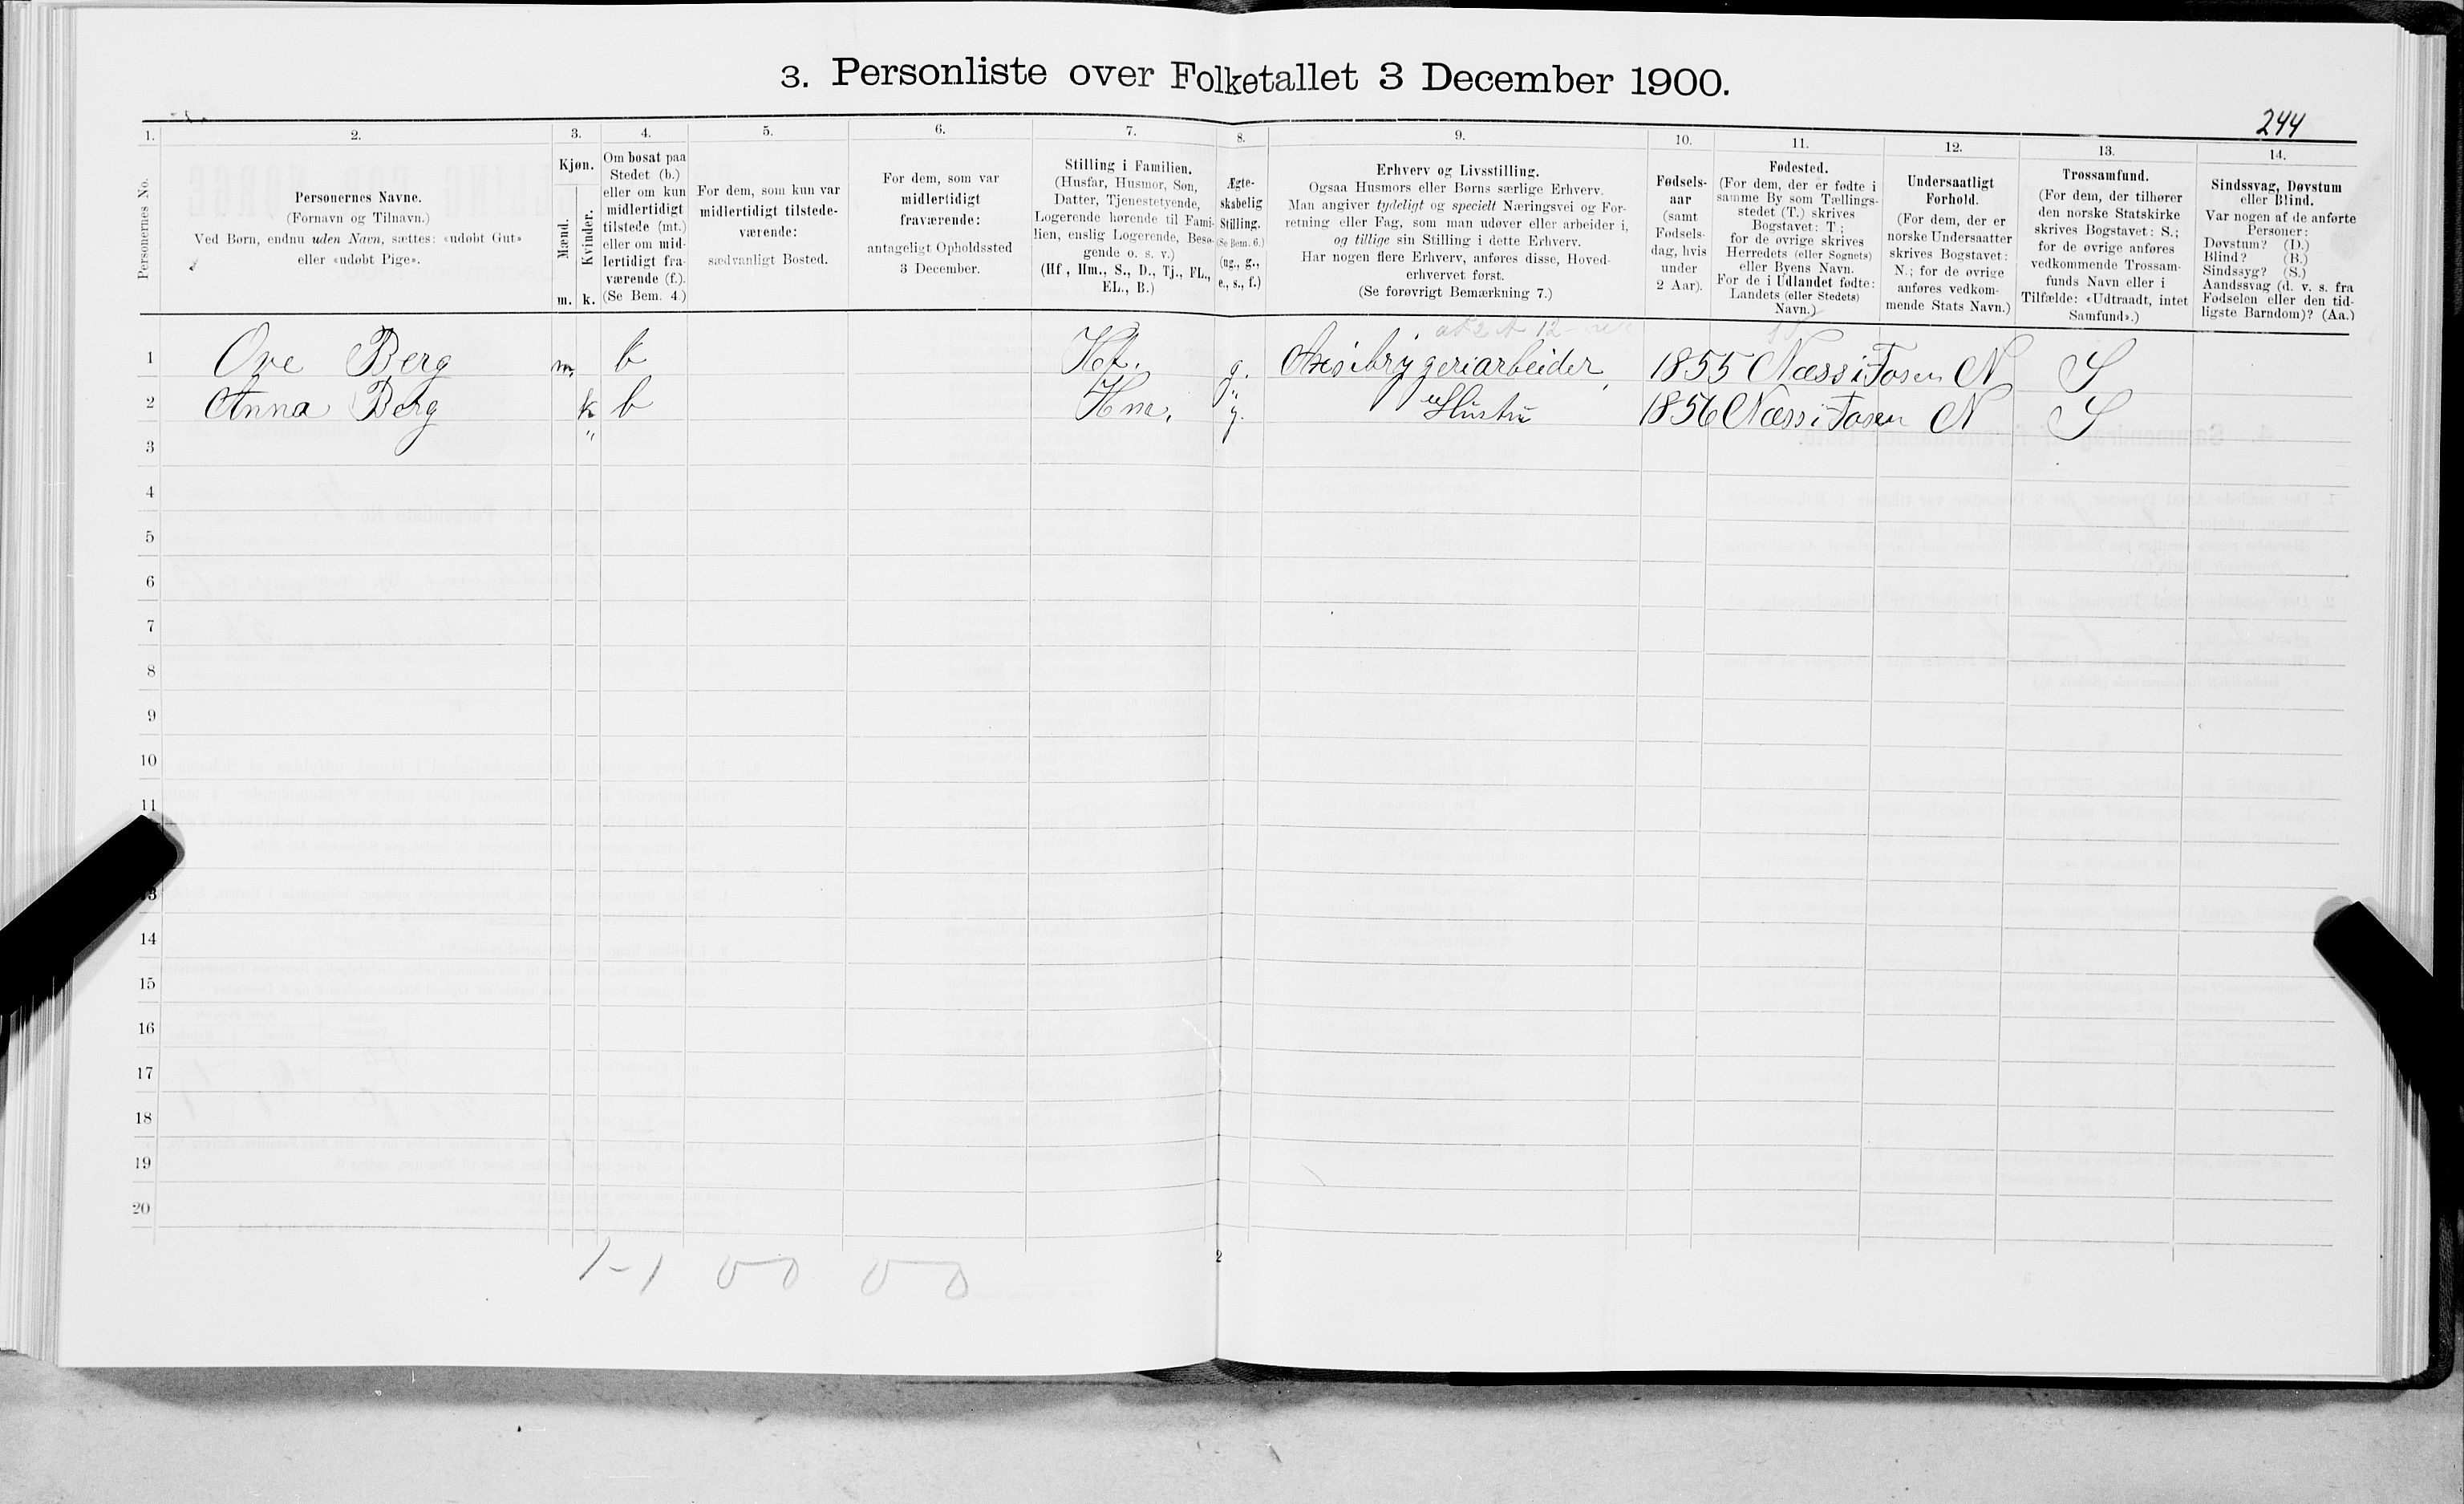 3. Personliste over Folketallet 3 December 1900.
244
1. 2. 3. 4. 5. 6. 7. 8. 9. 10. 11. 12. 13. 14.
Personernes No.
Personernes Navne.
(Fornavn og Tilnavn.)
Ved Børn, endnu uden Navn, sættes: «udøbt Gut»
eller «udøbt Pige».
Kjøn.
Mænd.
Kvinder.
m. k.
Om bosat paa
Stedet (b.)
eller om kun
midlertidigt
tilstede (mt.)
eller om mid-
lertidigt fra-
værende (f.).
(Se Bem. 4.)
For dem, som kun var
midlertidigt tilstede-
værende:
sædvanligt Bosted.
For dem, som var
midlertidigt
fraværende:
antageligt Opholdssted
3 December.
Stilling i Familien.
(Husfar, Husmor, Søn,
Datter, Tjenestetyende,
Logerende hørende til Fami-
lien, enslig Logerende, Besø-
gende o. s. v.)
(Hf., Hm., S., D., Tj., FL.,
EL., B.)
Ægte-
skabelig
Stilling.
(Se Bem. 6.)
(ug., g.,
e., s., f.)
Erhverv og Livsstilling.
Ogsaa Husmors eller Børns særlige Erhverv.
Man angiver tydeligt og specielt Næringsvei og For-
retning eller Fag, som man udøver eller arbeider i,
og tillige sin Stilling i dette Erhverv.
Har nogen flere Erhverv, anføres disse, Hoved-
erhvervet først.
(Se forøvrigt Bemærkning 7.)
Fødsels-
aar
(samt
Fødsels-
dag, hvis
under
2 Aar).
Fødested.
(For dem, der er fødte i
samme By som Tællings-
stedet (T.) skrives
Bogstavet: T.;
for de øvrige skrives
Herredets (eller Sognets)
eller Byens Navn.
For de i Udlandet fødte:
Landets (eller Stedets)
Navn.)
Undersaatligt
Forhold.
(For dem, der er
norske Undersaatter
skrives Bogstavet:
N.; for de øvrige
anføres vedkom-
mende Stats Navn.)
Trossamfund.
(For dem, der tilhører
den norske Statskirke
skrives Bogstavet: S.;
for de øvrige anføres
vedkommende Trossam-
funds Navn eller i
Tilfælde: «Udtraadt, intet
Samfund».)
Sindssvag, Døvstum
eller Blind.
Var nogen af de anførte
Personer:
Døvstum? (D.)
Blind? (B.)
Sindssyg? (S.)
Aandssvag (d. v. s. fra
Fødselen eller den tid-
ligste Barndom)? (Aa.)
1 Ove Berg m. b Hf. g. 1855 Næss i Fosen N S
2 Anna Berg k b Hm. g. Hustru 1856 Næss i Fosen N S
3
4
5
6
7
8
9
10
11
13
14
15
16
17
18
19
20
1-1 0 0 0 0
2